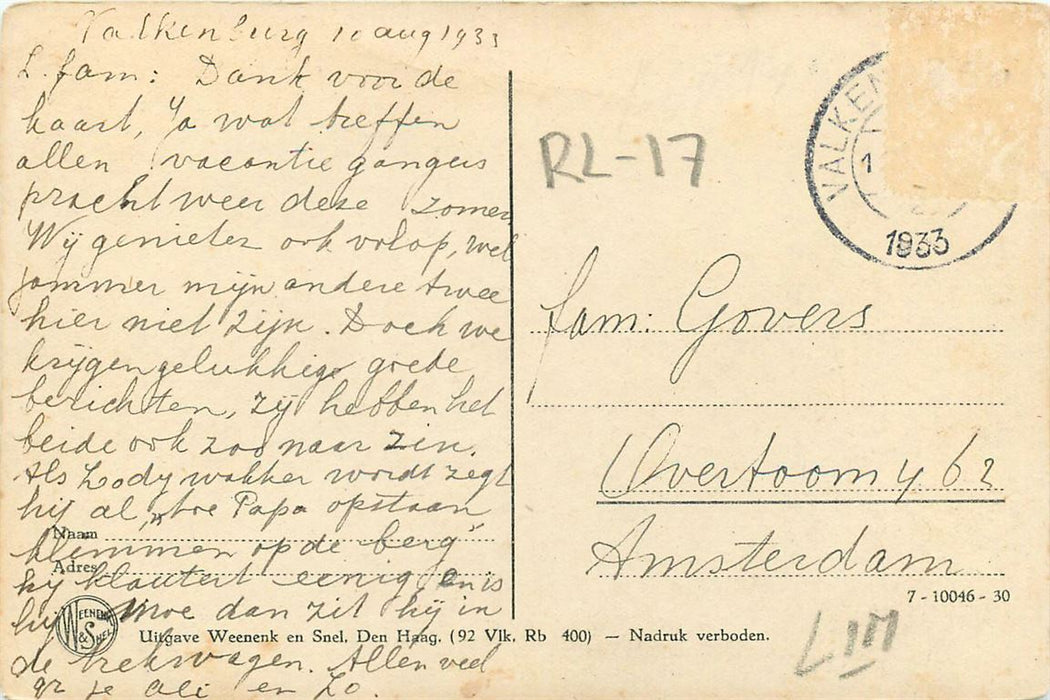 Valkenburg 10 aug 1933
L. fam: Dank voor de
kaart, Ja wat treffen
allen vacantie gangers
prachtweer deze zomer
Wij genieten ook volop, wel
jammer mijn andere twee
hier niet zijn. Doch we
krijgen gelukkig goede
berichten, zij hebben het
beide ook zoo naar zin.
Als Lody wakker wordt zegt
hij al, "toe Papa opstaan
klimmen op de berg"
hij klautert eenig, en is
hij moe dan zit hij in
de trekwagen. Allen veel
gr je Ali en Lo.
Naam
Adres
WEENENK & SNEL
Uitgave Weenenk en Snel, Den Haag. (92 Vlk, Rb 400) — Nadruk verboden.
RL-17
VALKEN
1
1933
fam: Govers
Overtoom 462
Amsterdam
7 - 10046 - 30
LIM